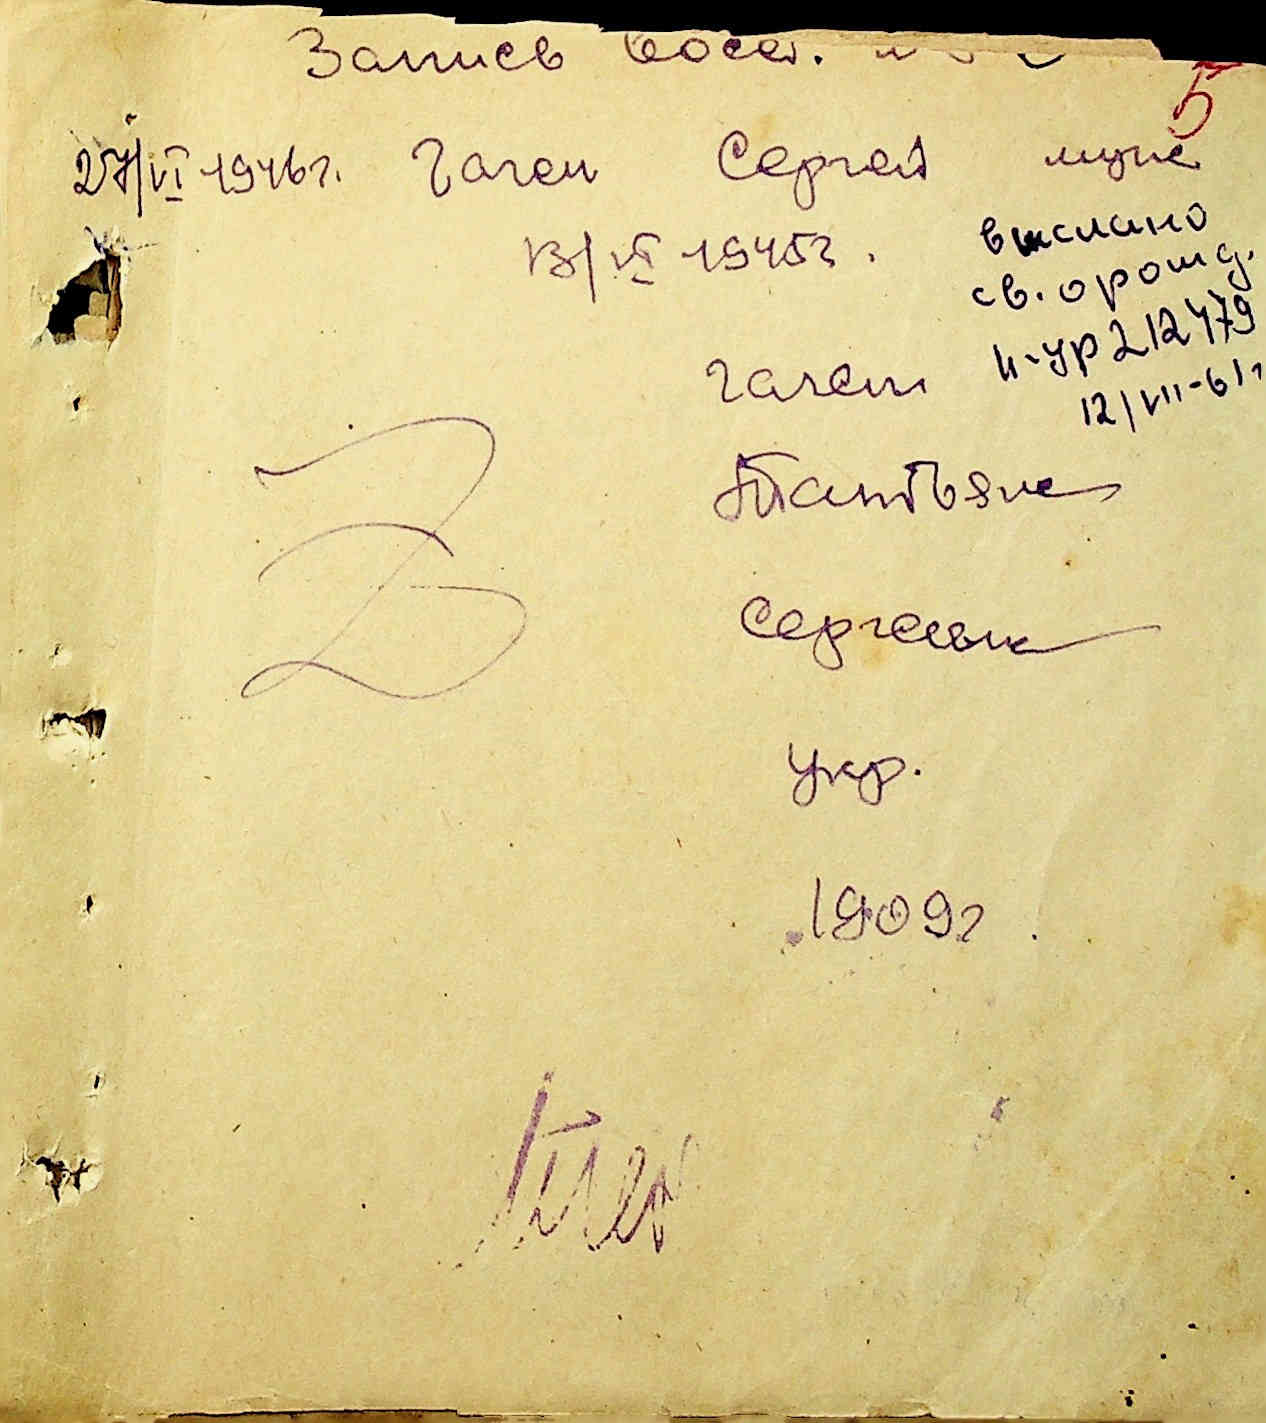 Запись восст.
5
27/VI 1946г. Гаген Сергей муж
13/VI 1945г.
выслано
св. о рожд.
II-УР 212479
12/VII-61г
Гаген
Татьяна
Сергеевна
укр.
1909г